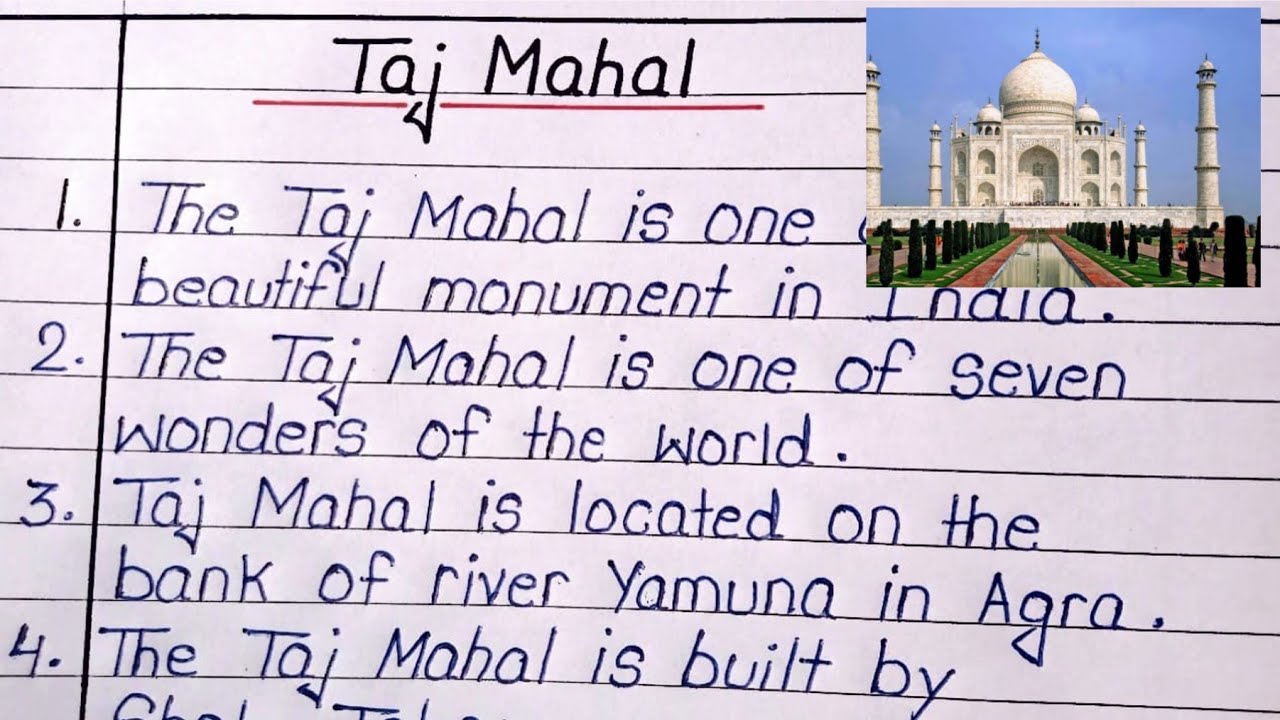 Taj Mahal
1. The Taj Mahal is one
beautiful monument in India.
2. The Taj Mahal is one of seven
wonders of the world.
3. Taj Mahal is located on the
bank of river Yamuna in Agra.
4. The Taj Mahal is built by